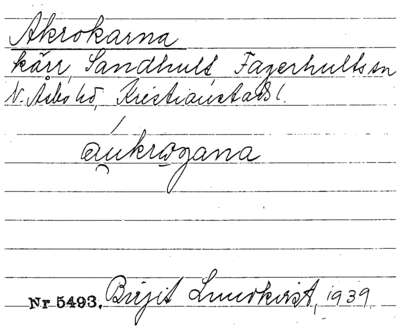 Akrokarna
kärr, Sandhult, Fagerhults sn
N. Åsbo hd, Kristianstads l.
áukrωgana
Nr 5493. Birgit Lundkvist, 1939